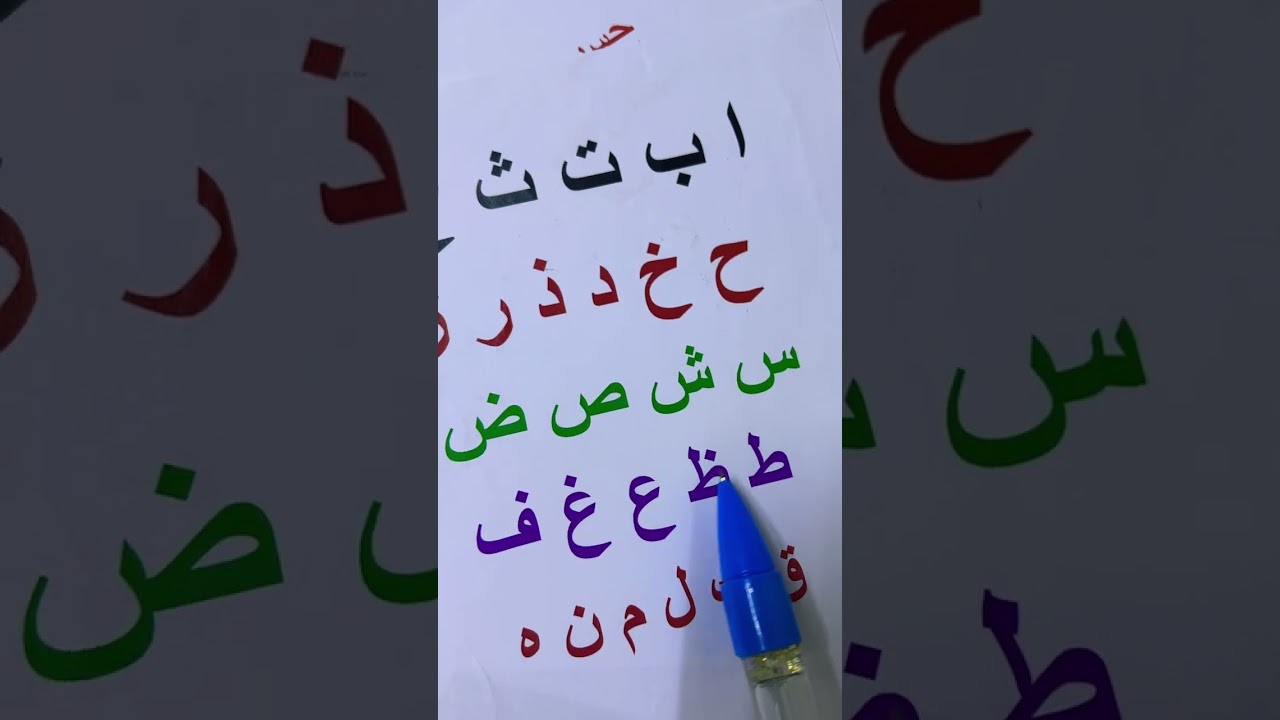 ا ب ت ث
ح خ د ذ ر
س ش ص ض
ط ظ ع غ ف
ق ل م ن ه